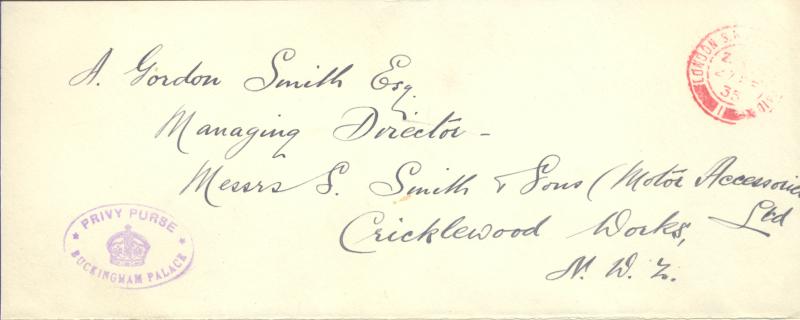 A. Gordon Smith Esq.
Managing Director -
Messrs S. Smith & Sons (Motor Accessories
Ltd
Cricklewood Works,
N. W. 2.
PRIVY PURSE
BUCKINGHAM PALACE
LONDON S.
35